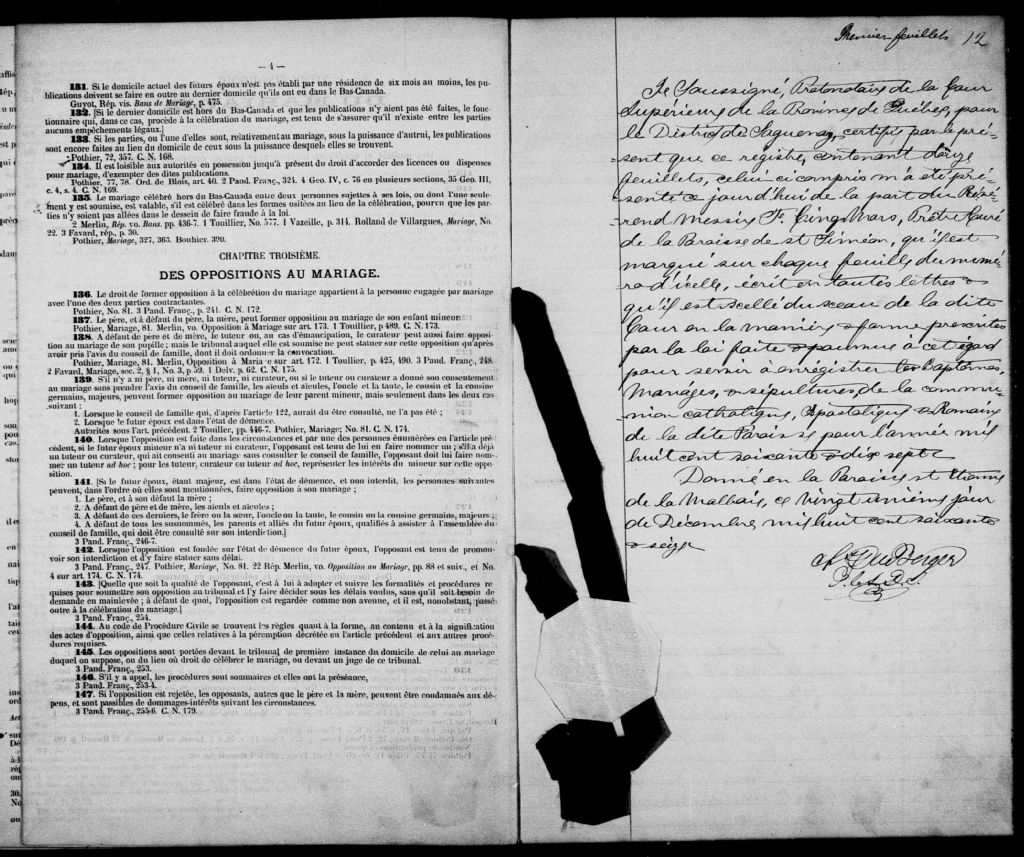 — 4 —
131. Si le domicile actuel des futurs époux n'est pas établi par une résidence de six mois au moins, les pu-
blications doivent se faire en outre au dernier domicile qu'ils ont eu dans le Bas-Canada.
Guyot, Rép. vis. Bans de Mariage, p. 475.
132. [Si le dernier domicile est hors du Bas-Canada et que les publications n'y aient pas été faites, le fonc-
tionnaire qui, dans ce cas, procède à la célébration du mariage, est tenu de s'assurer qu'il n'existe entre les parties
aucuns empêchements légaux.]
133. Si les parties, ou l'une d'elles sont, relativement au mariage, sous la puissance d'autrui, les publications
sont encore faites au lieu du domicile de ceux sous la puissance desquels elles se trouvent.
Pothier, 72, 357. C. N. 168.
134. Il est loisible aux autorités en possession jusqu'à présent du droit d'accorder des licences ou dispenses
pour mariage, d'exempter des dites publications.
Pothier, 77, 78. Ord. de Blois, art. 40. 2 Pand. Franç., 324. 4 Geo. IV, c. 76 en plusieurs sections, 35 Geo. III,
c. 4, s. 4. C. N. 169.
135. Le mariage célébré hors du Bas-Canada entre deux personnes sujettes à ses lois, ou dont l'une seule-
ment y est soumise, est valable, s'il est célébré dans les formes usitées au lieu de la célébration, pourvu que les par-
ties n'y soient pas allées dans le dessein de faire fraude à la loi.
2 Merlin, Rép. vo. Bans. pp. 436-7. 1 Touillier, No. 577. 1 Vazeille, p. 314. Rolland de Villargues, Mariage, No.
22. 3 Favard, rép., p. 30.
Pothier, Mariage, 327, 363. Bouhier. 390.
CHAPITRE TROISIÈME.
DES OPPOSITIONS AU MARIAGE.
136. Le droit de former opposition à la célébrétion du mariage appartient à la personne engagée par mariage
avec l'une des deux parties contractantes.
Pothier, No. 81. 3 Pand. Franç., p. 241. C. N. 172.
137. Le père, et à défaut du père, la mère, peut former opposition au mariage de son enfant mineur.
Pothier, Mariage, 81. Merlin, vo. Opposition à Mariage sur art. 173. 1 Touillier, p. 489. C. N. 173.
138. A défaut de père et de mère, le tuteur ou, au cas d'émancipation, le curateur peut aussi faire opposi-
tion au mariage de son pupille; mais le tribunal auquel elle est soumise ne peut statuer sur cette opposition qu'après
avoir pris l'avis du conseil de famille, dont il doit ordonner la convocation.
Pothier, Mariage, 81. Merlin, Opposition à Maria e sur art. 172. 1 Toullier, p. 425, 490. 3 Pand. Franç., 248.
2 Favard, Mariage, sec. 2, § 1, No. 3, p 59. 1 Delv. p. 62. C. N. 175.
139. S'il n'y a ni père, ni mère, ni tuteur, ni curateur, ou si le tuteur ou curateur a donné son consentement
au mariage sans prendre l'avis du conseil de famille, les aïeuls et aïeules, l'oncle et la tante, le cousin et la cousine
germains, majeurs, peuvent former opposition au mariage de leur parent mineur, mais seulement dans les deux cas
suivant :
1. Lorsque le conseil de famille qui, d'après l'article 122, aurait du être consulté, ne l'a pas été ;
2. Lorsque le futur époux est dans l'état de démence.
Autorités sous l'art. précédent. 2 Touiller, pp. 446-7. Pothier, Mariage; No. 81. C. N. 174.
140. Lorsque l'opposition est faite dans les circonstances et par une des personnes énumérées en l'article pré
cédent, si le futur époux mineur n'a ni tuteur ni curateur, l'opposant est tenu de lui en faire nommer un ; s'il a déjà
un tuteur ou curateur, qui ait consenti au mariage sans consulter le conseil de famille, l'opposant doit lui faire nom-
mer un tuteur ad hoc ; pour les tuteur, curateur ou tuteur ad hoc, représenter les intérêts du mineur sur cette oppo-
sition.
141. [Si le futur époux, étant majeur, est dans l'état de démence, et non interdit, les personnes suivantes
peuvent, dans l'ordre où elles sont mentionnées, faire opposition à son mariage ;
1. Le père, et à son défaut la mère ;
2. A défaut de père et de mère, les aïeuls et aïeules ;
3. A défaut de ces derniers, le frère ou la sœur, l'oncle ou la tante, le cousin ou la cousine germains, majeurs ;
4. A défaut de tous les susnommés, les parents et alliés du futur époux, qualifiés à assister à l'assemblée du
conseil de famille, qui doit être consulté sur son interdiction.]
3 Pand. Franç., 246-7.
142. Lorsque l'opposition est fondée sur l'état de démence du futur époux, l'opposant est tenu de promou-
voir son interdiction et d'y faire statuer sans délai.
3 Pand. Franç., 247. Pothier, Mariage, No. 81. 22 Rép. Merlin, vo. Opposition au Mariage, pp. 88 et suiv., et No.
4 sur art. 174. C. N. 174.
143. [Quelle que soit la qualité de l'opposant, c'est à lui à adopter et suivre les formalités et procédures re
quises pour soumettre son opposition au tribunal et l'y faire décider sous les délais voulus, sans qu'il soit besoin de
demande en mainlevée ; à défaut de quoi, l'opposition est regardée comme non avenue, et il est, nonobstant, passé
outre à la célébration du mariage.]
3 Pand. Franç., 254.
144. Au code de Procédure Civile se trouvent les règles quant à la forme, au contenu et à la signification
des actes d'opposition, ainsi que celles relatives à la péremption décrétée en l'article précédent et aux autres procé-
dures requises.
145. Les oppositions sont portées devant le tribunal de première instance du domicile de celui au mariage
duquel on s'oppose, ou du lieu où droit de célébrer le mariage, ou devant un juge de ce tribunal.
3 Pand. Franç., 253.
146. S'il y a appel, les procédures sont sommaires et elles ont la préséance,
3 Pand. Franç., 253-4.
147. Si l'opposition est rejetée, les opposants, autres que le père et la mère, peuvent être condamnés aux dé-
pens, et sont passibles de dommages-intérêts suivant les circonstances.
3 Pand. Franç., 255-6. C. N. 179.
Premier feuillets 12
Je Soussigné, Protonotaire de la Cour
Supérieure de la Province de Québec, pour
le District de Saguenay, certifie par le pré-
sent que ce registre, contenant douze
feuillets, celui-ci compris m'a été pré-
senté ce jourd'hui de la part du Révé-
rend Messire F. Cinq Mars, Prêtre Curé
de la Paroisse de st Siméon, qu'il est
marqué sur chaque feuille du numé-
ro d'icelle, écrit en toutes lettres &
qu'il est scellé du sceau de la dite
Cour en la manière & forme prescrites
par la loi faite & pourvue à cet égard
pour servir à enregistrer les Baptêmes,
Mariages, & sépultures, de la commu-
nion catholique, Apostolique & Romaine
de la dite Paroisse pour l'année mil
huit cent soixante & dix sept
Donné en la Paroisse st Etienne
de la Malbaie, ce vingt unième jour
de Décembre mil huit cent soixante
& seize
Chs DuBerger
P. C. S. D. S.